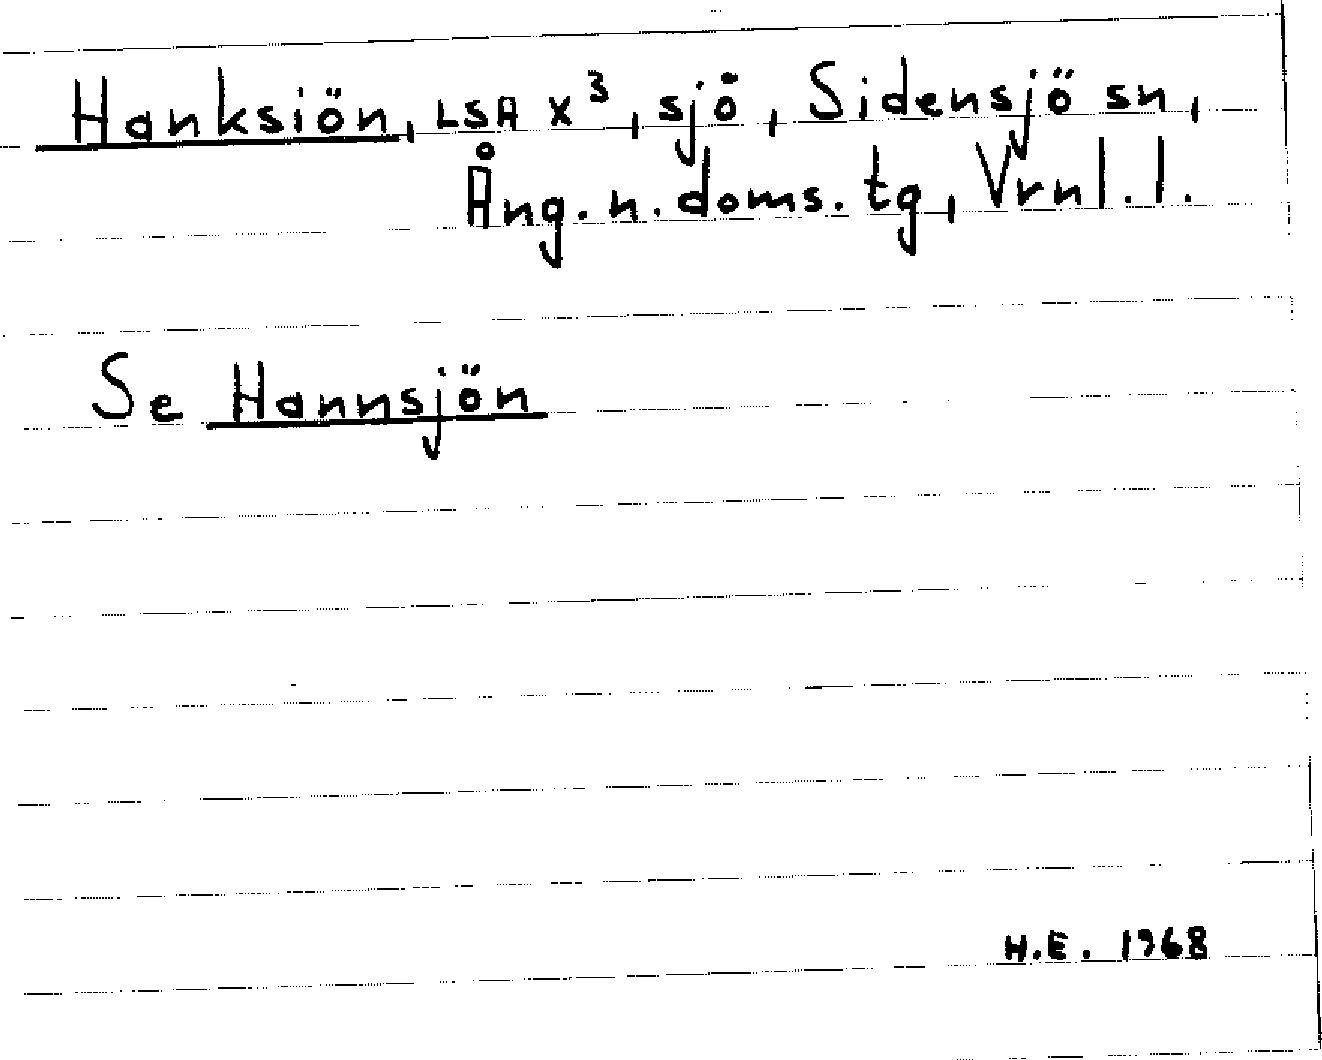 Hanksiön, LSA X³, sjö, Sidensjö sn,
Ång. n. doms. tg, Vrnl. l.
Se Hannsjön
H.E. 1968